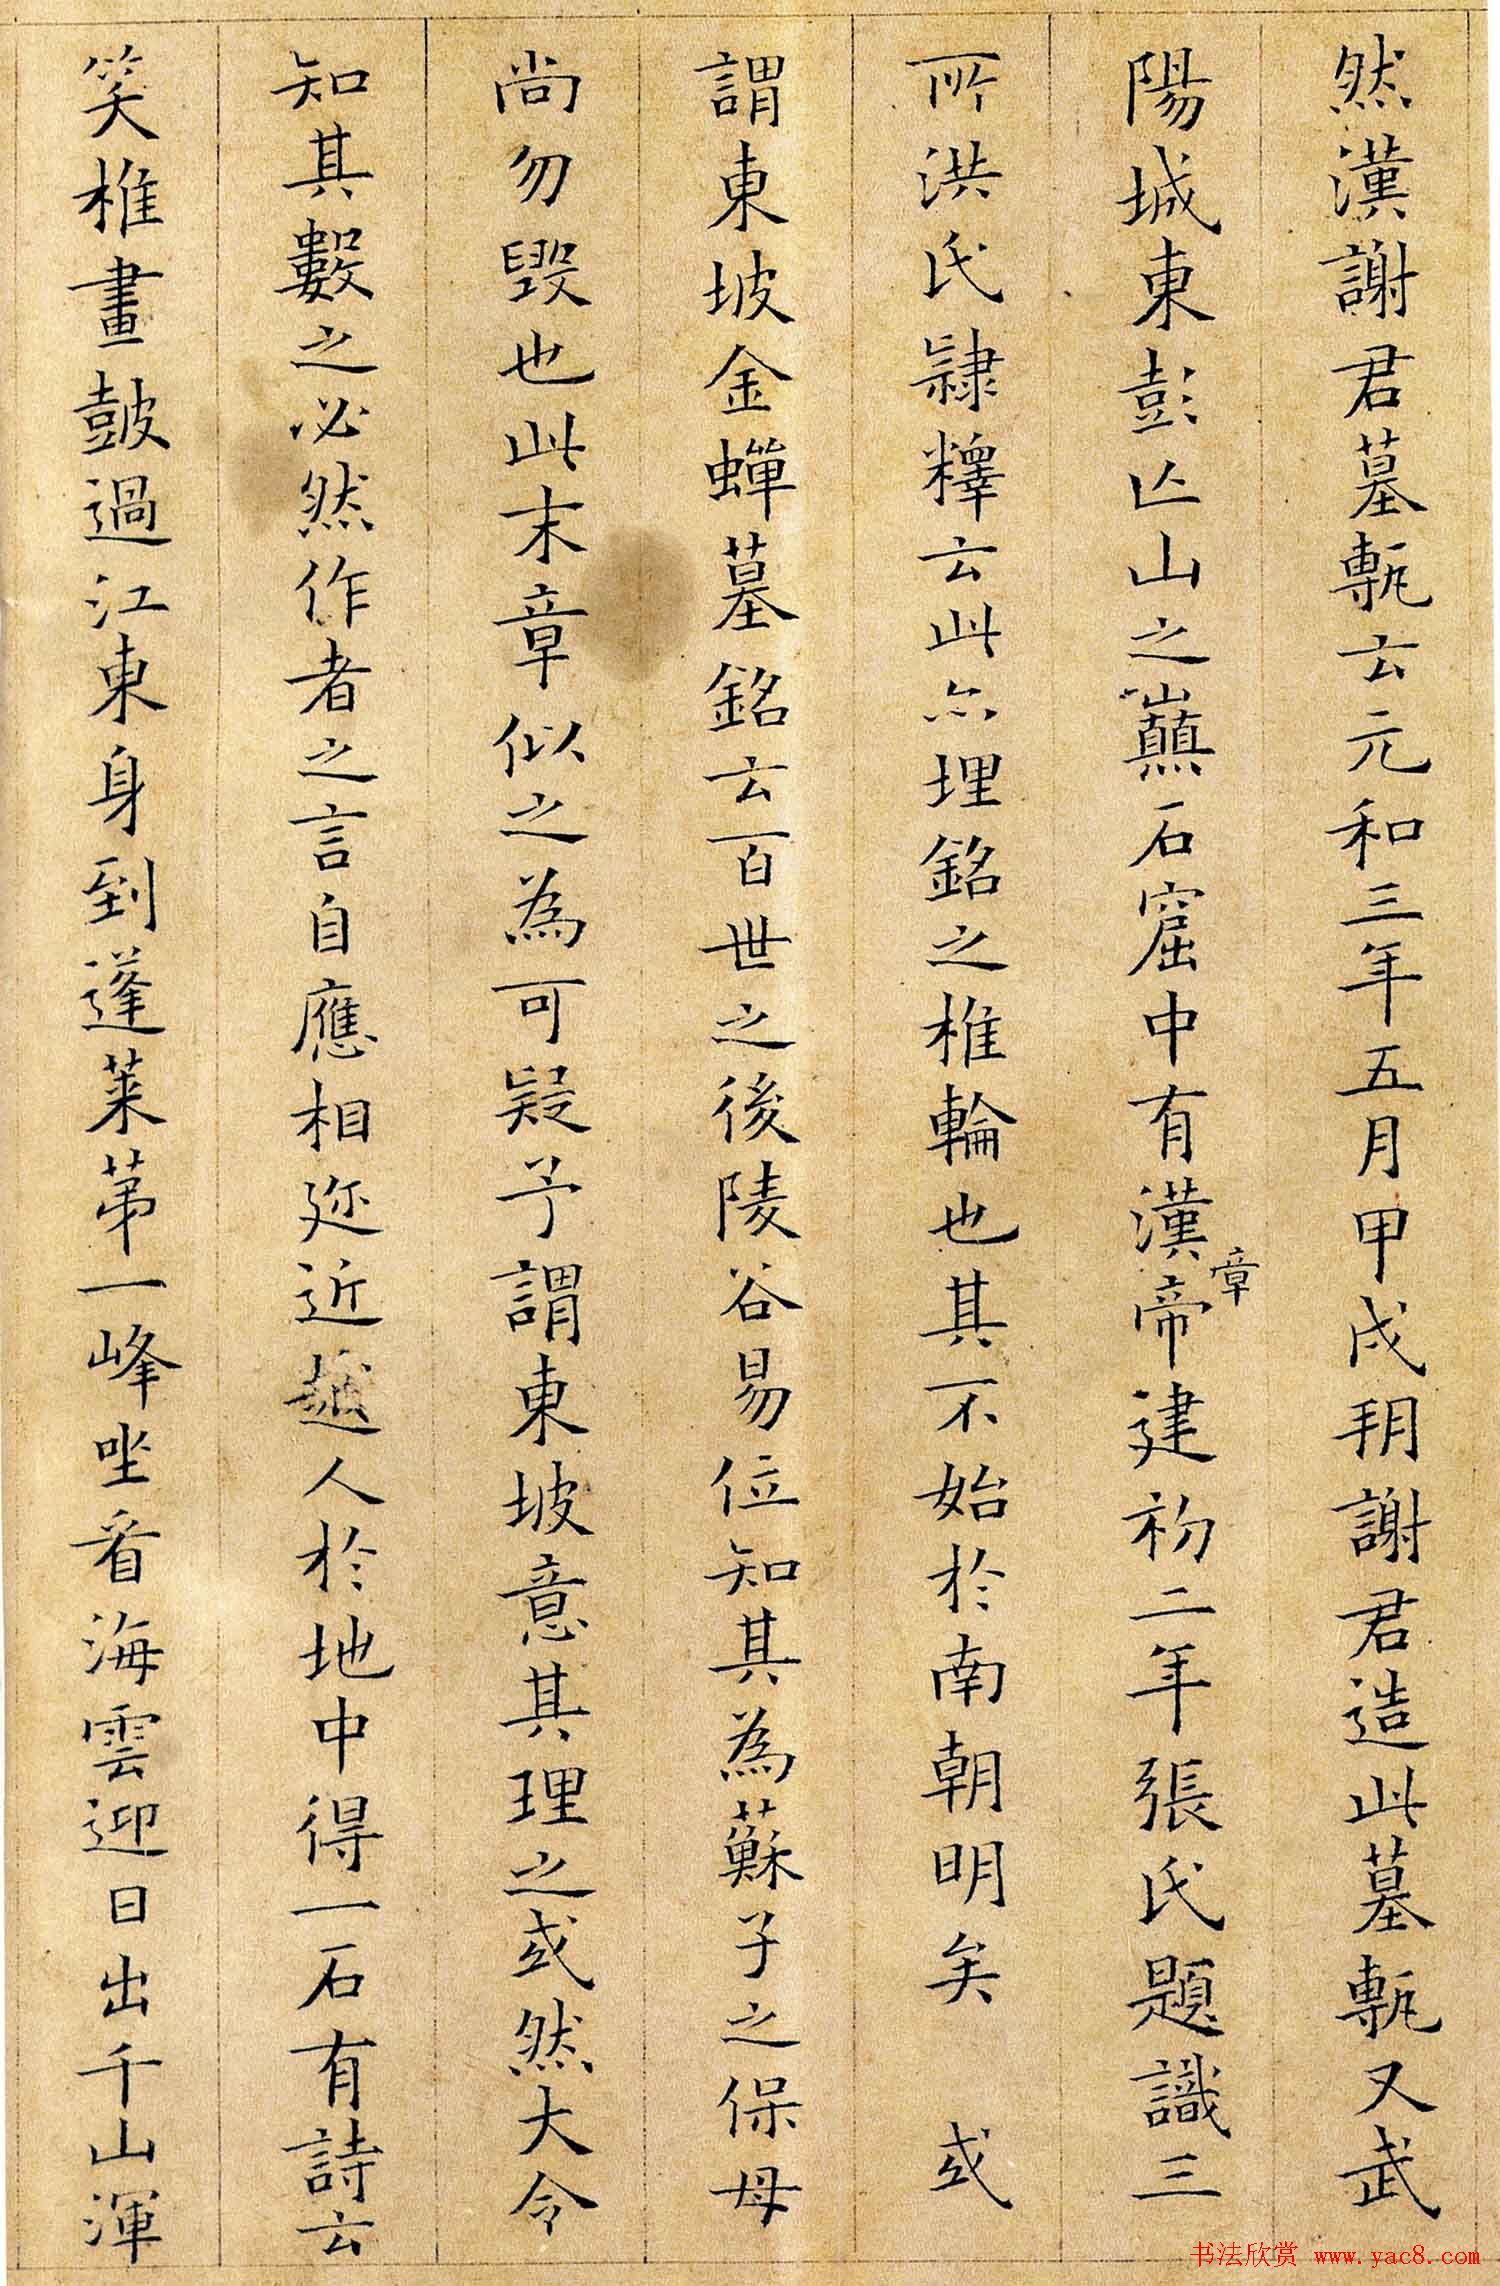 然漢謝君墓甎云元和三年五月甲戌朔謝君造此墓甎又武
陽城東彭亡山之巔石窟中有漢章帝建初二年張氏題識三
所洪氏隷釋云此亦埋銘之椎輪也其不始於南朝明矣 或
謂東坡金蟬墓銘云百世之後陵谷易位知其為蘇子之保母
尚勿毀也此末章似之為可疑予謂東坡意其理之或然大令
知其數之必然作者之言自應相迩近越人於地中得一石有詩云
笑椎畫鼓過江東身到蓬萊苐一峰坐看海雲迎日出千山渾
书法欣赏 www.yac8.com